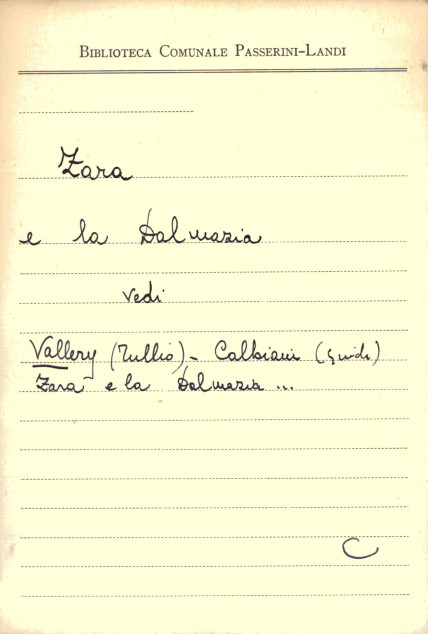 BIBLIOTECA COMUNALE PASSERINI-LANDI
Zara
e la Dalmazia
vedi
Vallery (Tullio) - Calbiani (Guido)
Zara e la Dalmazia ...
C